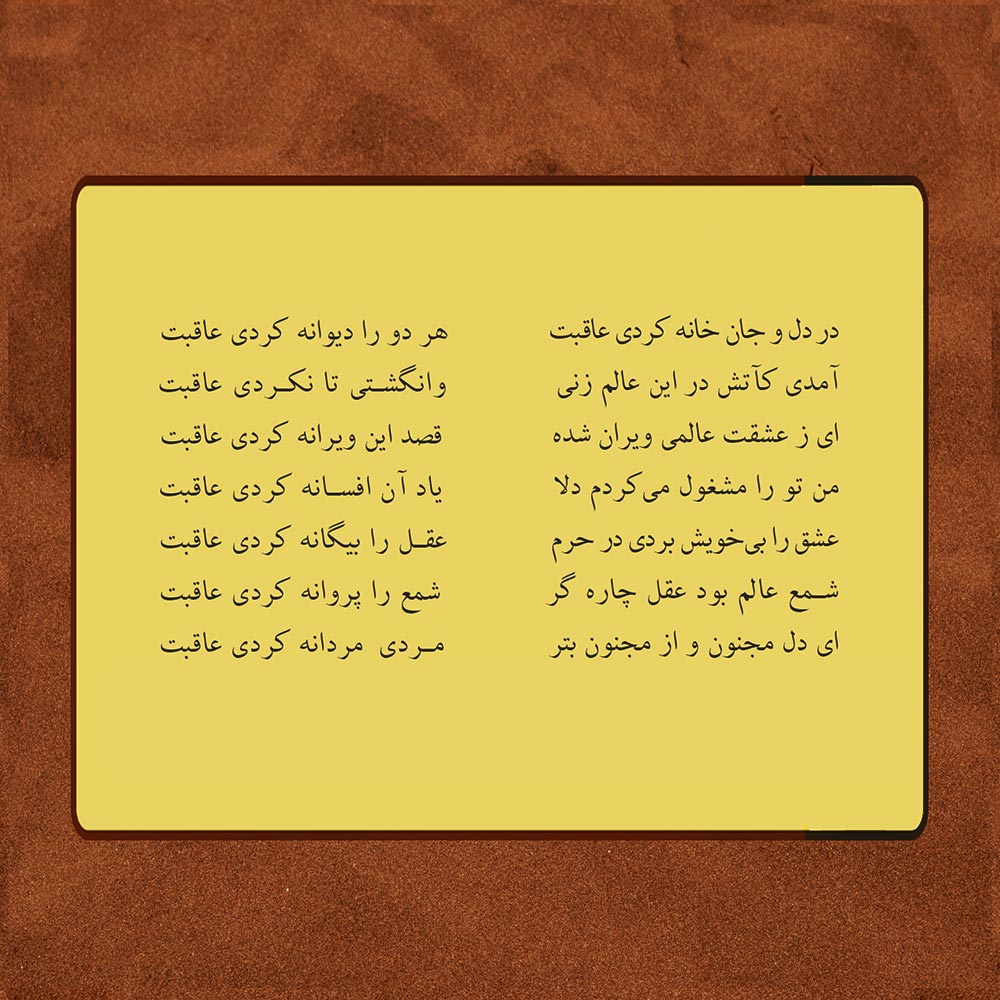 در دل و جان خانه کردی عاقبت هر دو را دیوانه کردی عاقبت
آمدی کآتش در این عالم زنی وانگشتی تا نکردی عاقبت
ای ز عشقت عالمی ویران شده قصد این ویرانه کردی عاقبت
من تو را مشغول می‌کردم دلا یاد آن افسانه کردی عاقبت
عشق را بی‌خویش بردی در حرم عقل را بیگانه کردی عاقبت
شمع عالم بود عقل چاره گر شمع را پروانه کردی عاقبت
ای دل مجنون و از مجنون بتر مردی مردانه کردی عاقبت